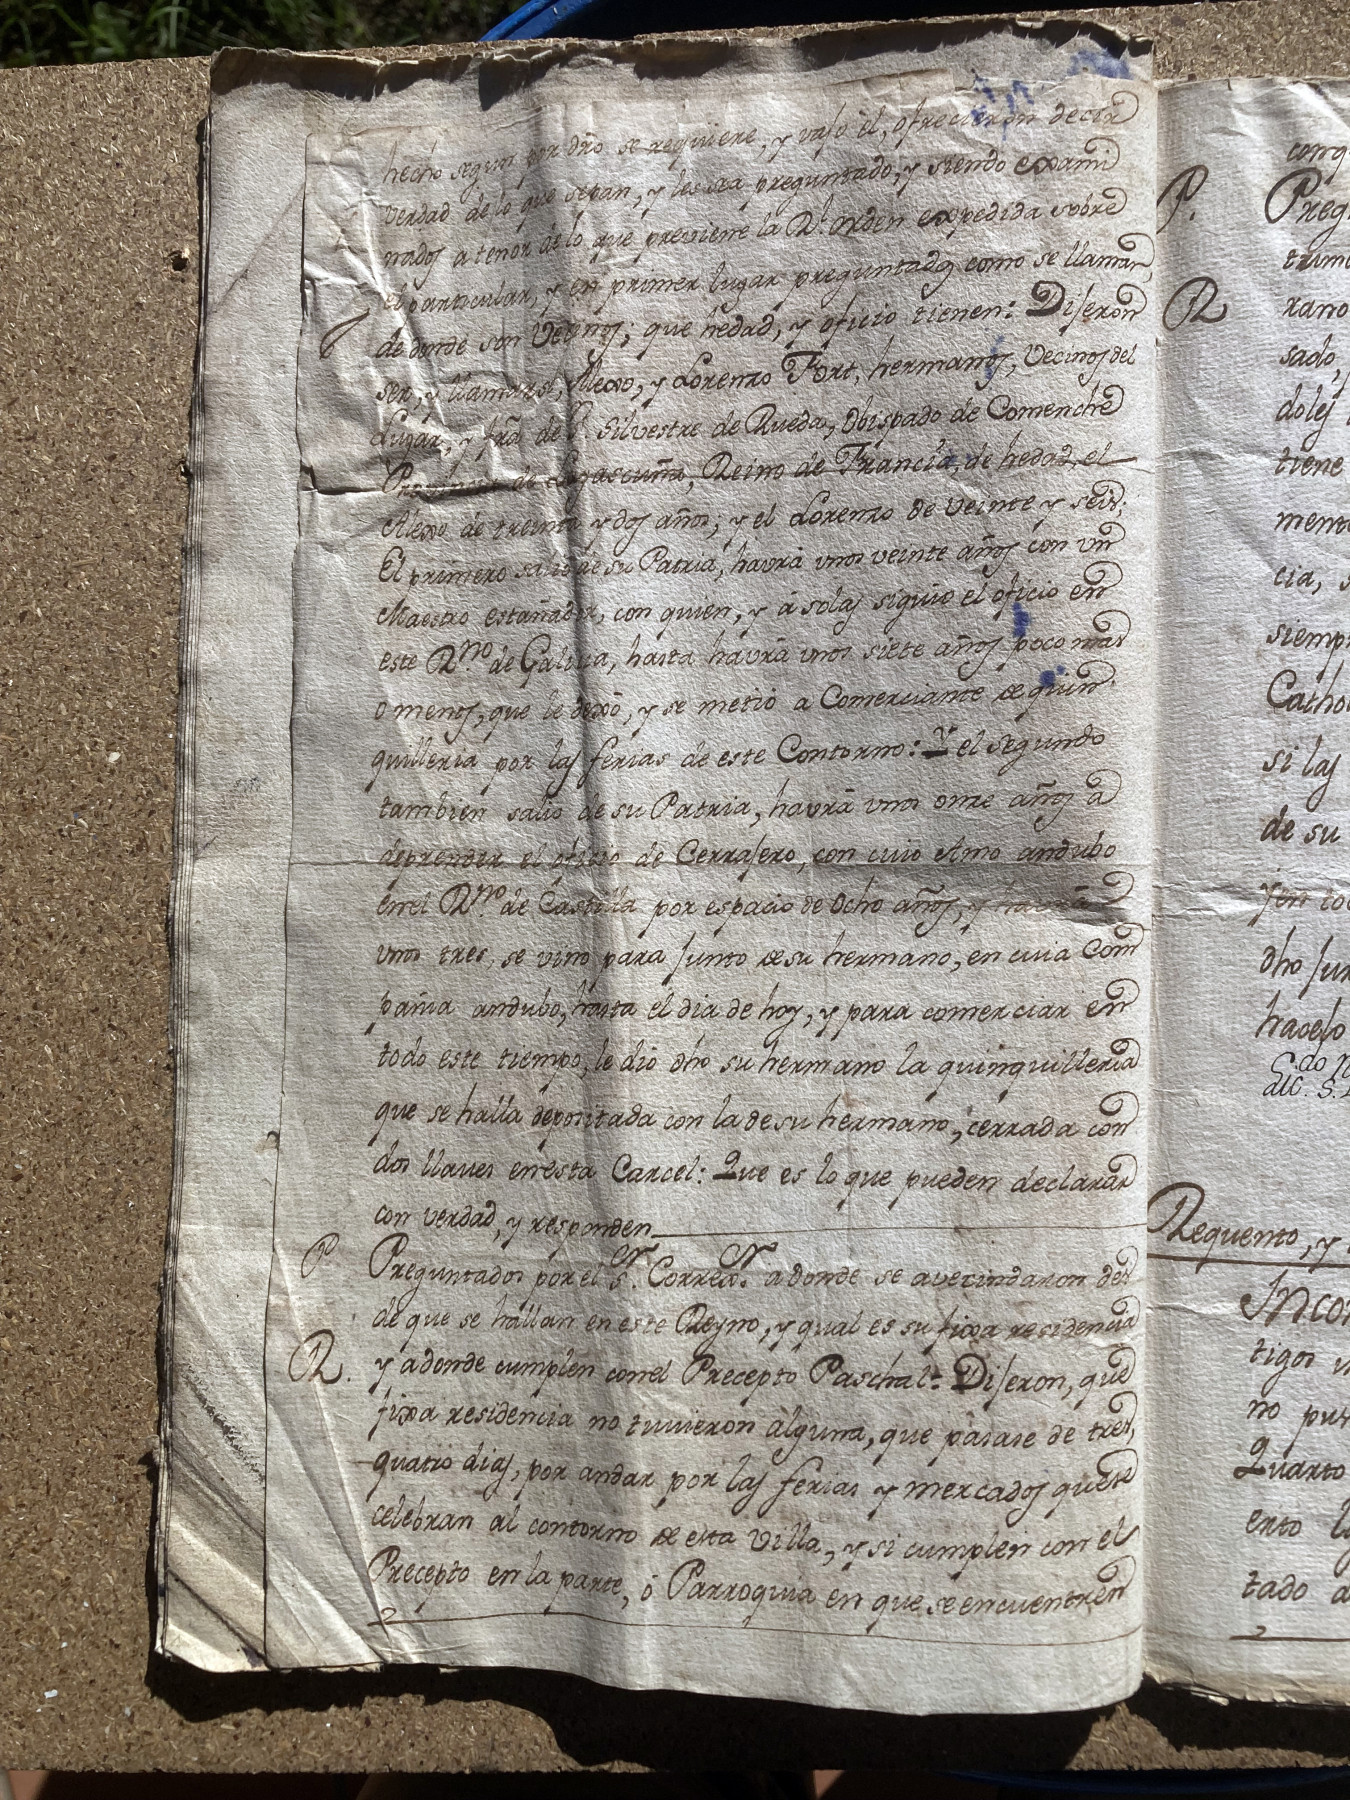 hecho segun por dro se requiere, y vajo èl, ofrecieron decir
verdad de lo que sepan, y les sea preguntado, y siendo exami
nados a tenor de lo que previene la Rl. orden expedida sobre
el particular, y en primer lugar preguntados como se llaman,
de donde son Vecinos; que hedad, y oficio tienen: Dijeron
ser, y llamarse, Alexo, y Lorenzo Fort, hermanos, Vecinos del
Lugar, y frâ de S. Silvestre de Rueda, Obispado de Comenche
Provincia de Gascuña, Reino de Francia, de hedad, el
Alexo de treinta y dos años; y el Lorenzo de veinte y seis;
El primero salió de su Patria, havrà unos veinte años con un
Maestro estañador, con quien, y à solas siguió el oficio en
este Rno de Galicia, hasta havrà unos siete años poco mas
o menos, que le dexò, y se metiò a Comerciante de quin
quilleria por las ferias de este Contorno: Y el segundo
tambien salió de su Patria, havrà unos onze años à
deprender el oficio de Cerrajero, con cuio Amo andubo
en el Rno. de Castilla por espacio de Ocho años, y havrà
unos tres, se vino para junto de su hermano, en cuia Com
pañia andubo, hasta el dia de hoy, y para comerciar en
todo este tiempo, le diò dho su hermano la quinquilleria
que se halla depositada con la de su hermano, cerrada con
dos llaves en esta Carcel: Que es lo que pueden declarar
con verdad, y responden
P Preguntados por el Sr. Correxr. a donde se avecindaron des
de que se hallan en este Reyno, y qual es su fixa residencia
R. y adonde cumplen con el Precepto Paschal: Dijeron, que
fixa residencia no tuvieron alguna, que pasase de tres,
quatro dias, por andar por las ferias y mercados que se
celebran al contorno de esta Villa, y si cumplen con el
Precepto en la parte, ò Parroquia en que se encuentren
P. Preg
R
sado,
tiene
siempr
si las
de su
dho jur
Requento, y
tigos
Quarto
tado